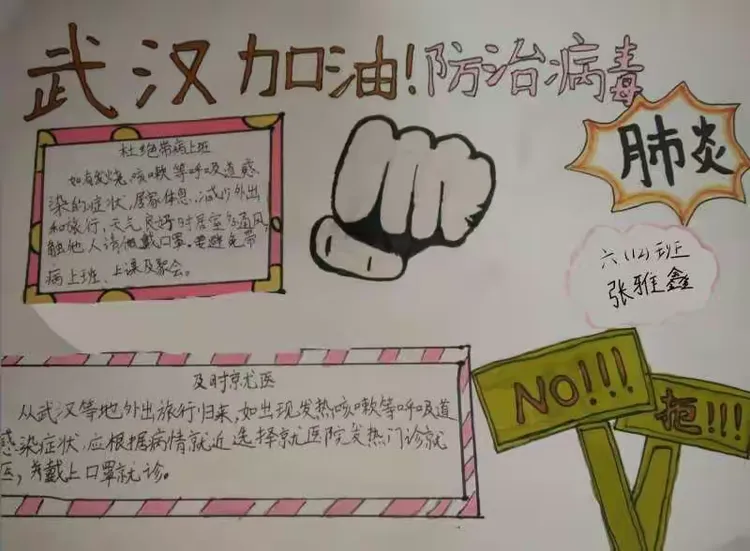 武汉加油!防治病毒
肺炎
六(12)班
张雅鑫
杜绝带病上班
如有发烧、咳嗽等呼吸道感
染的症状,居家休息,减少外出
和旅行,天气良好时居室多通风,
触他人请做戴口罩。要避免带
病上班、上课及聚会。
及时京尤医
从武汉等地外出旅行归来,如出现发热咳嗽等呼吸道
感染症状,应根据病情就近选择就医院发热门诊就
医,并戴上口罩就诊。
NO!!!
拒!!!